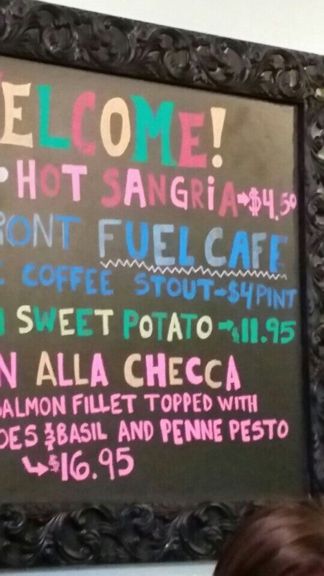 ELCOME!
HOT SANGRiA→$4.50
RONT FUEL CAFE
COFFEE STOUT-$4 PINT
SWEET POTATO→$11.95
N ALLA CHECCA
SALMON FILLET TOPPED WITH
OES & BASIL AND PENNE PESTO
↳$16.95